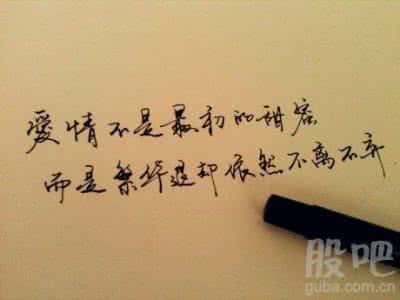 愛情不是最初的甜蜜
而是繁华退却依然不离不弃.
股吧
guba.com.cn